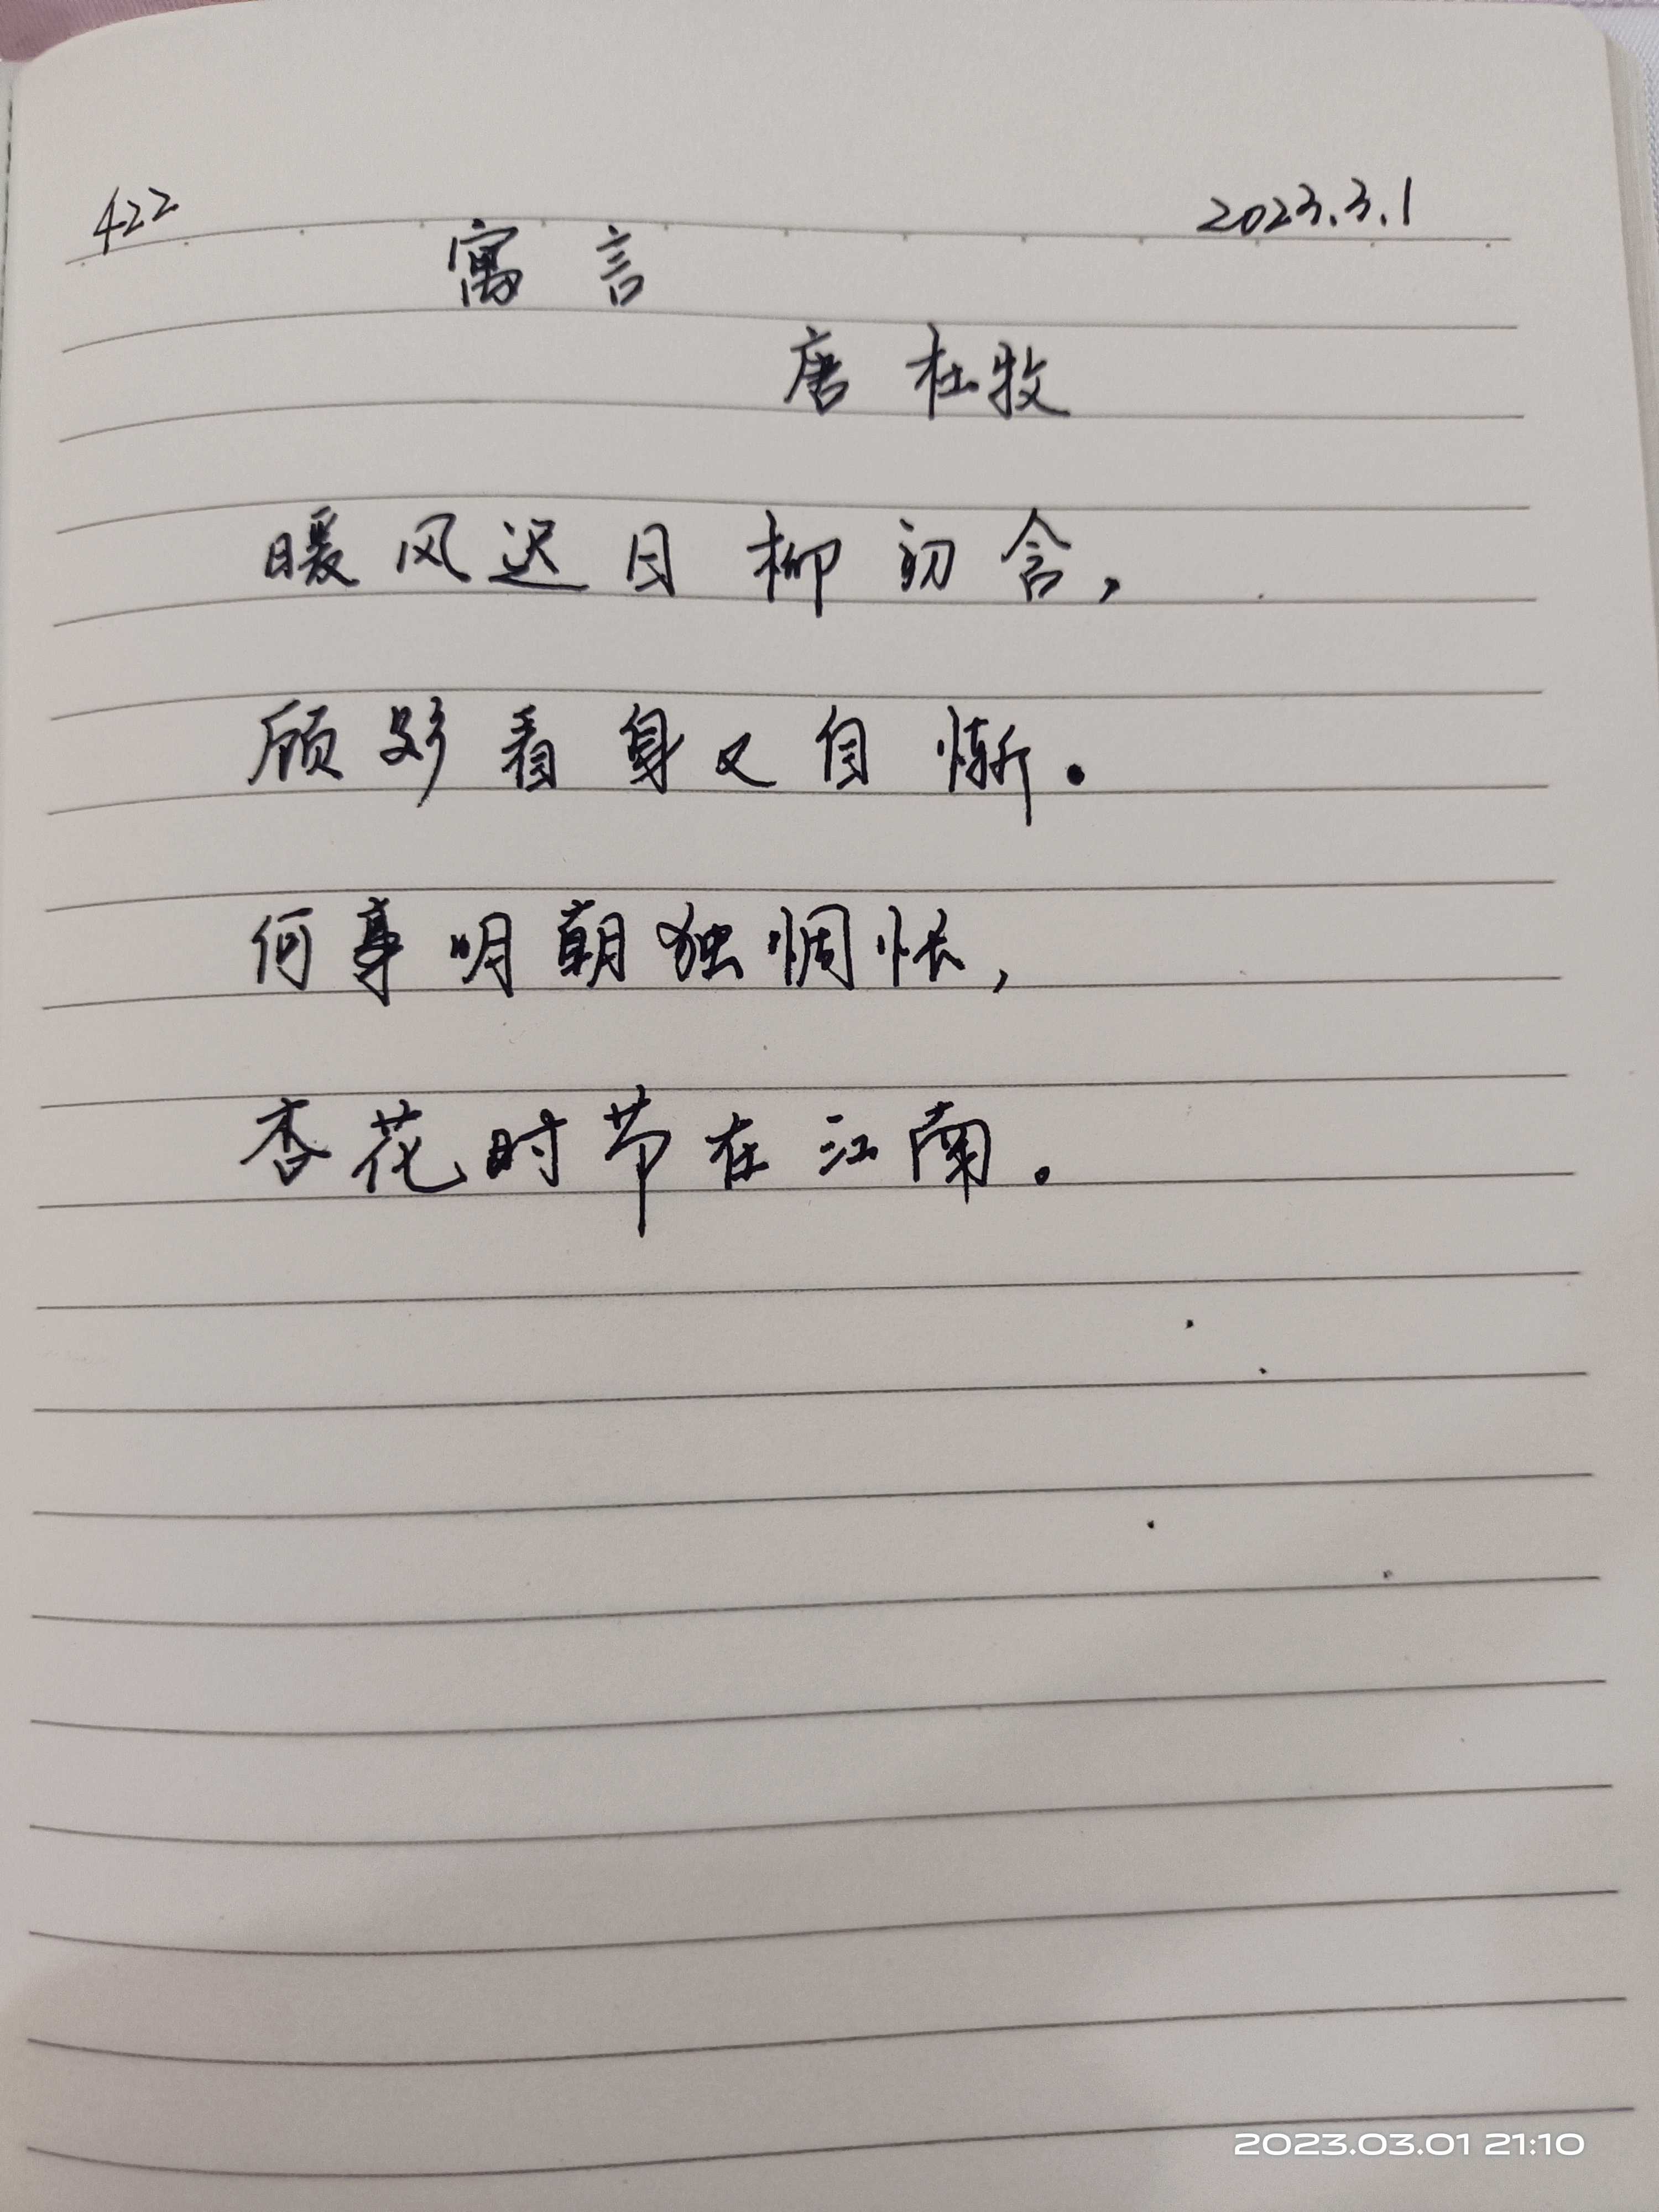 422 2023.3.1
寓言
唐 杜牧
暖风迟日柳初含,
顾影看身又自惭.
何事明朝独惆怅,
杏花时节在江南.
2023.03.01 21:10